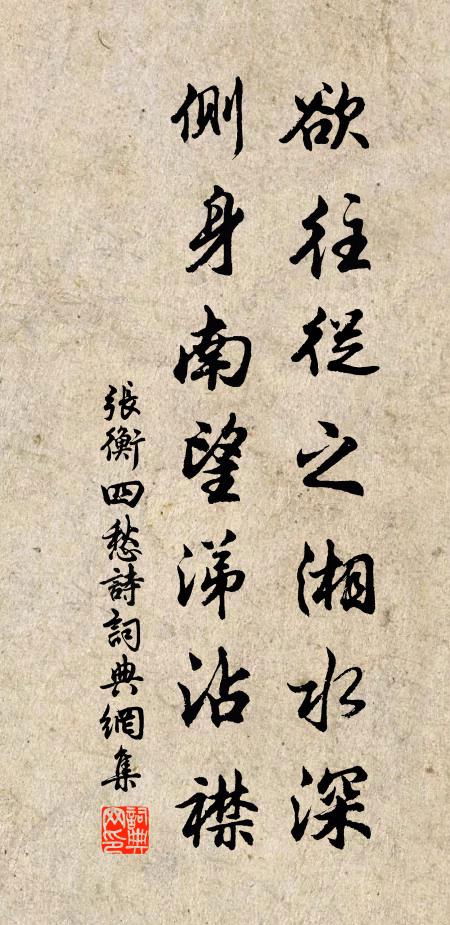 欲往從之湘水深
側身南望涕沾襟
張衡四愁詩詞典網集
詞典网印